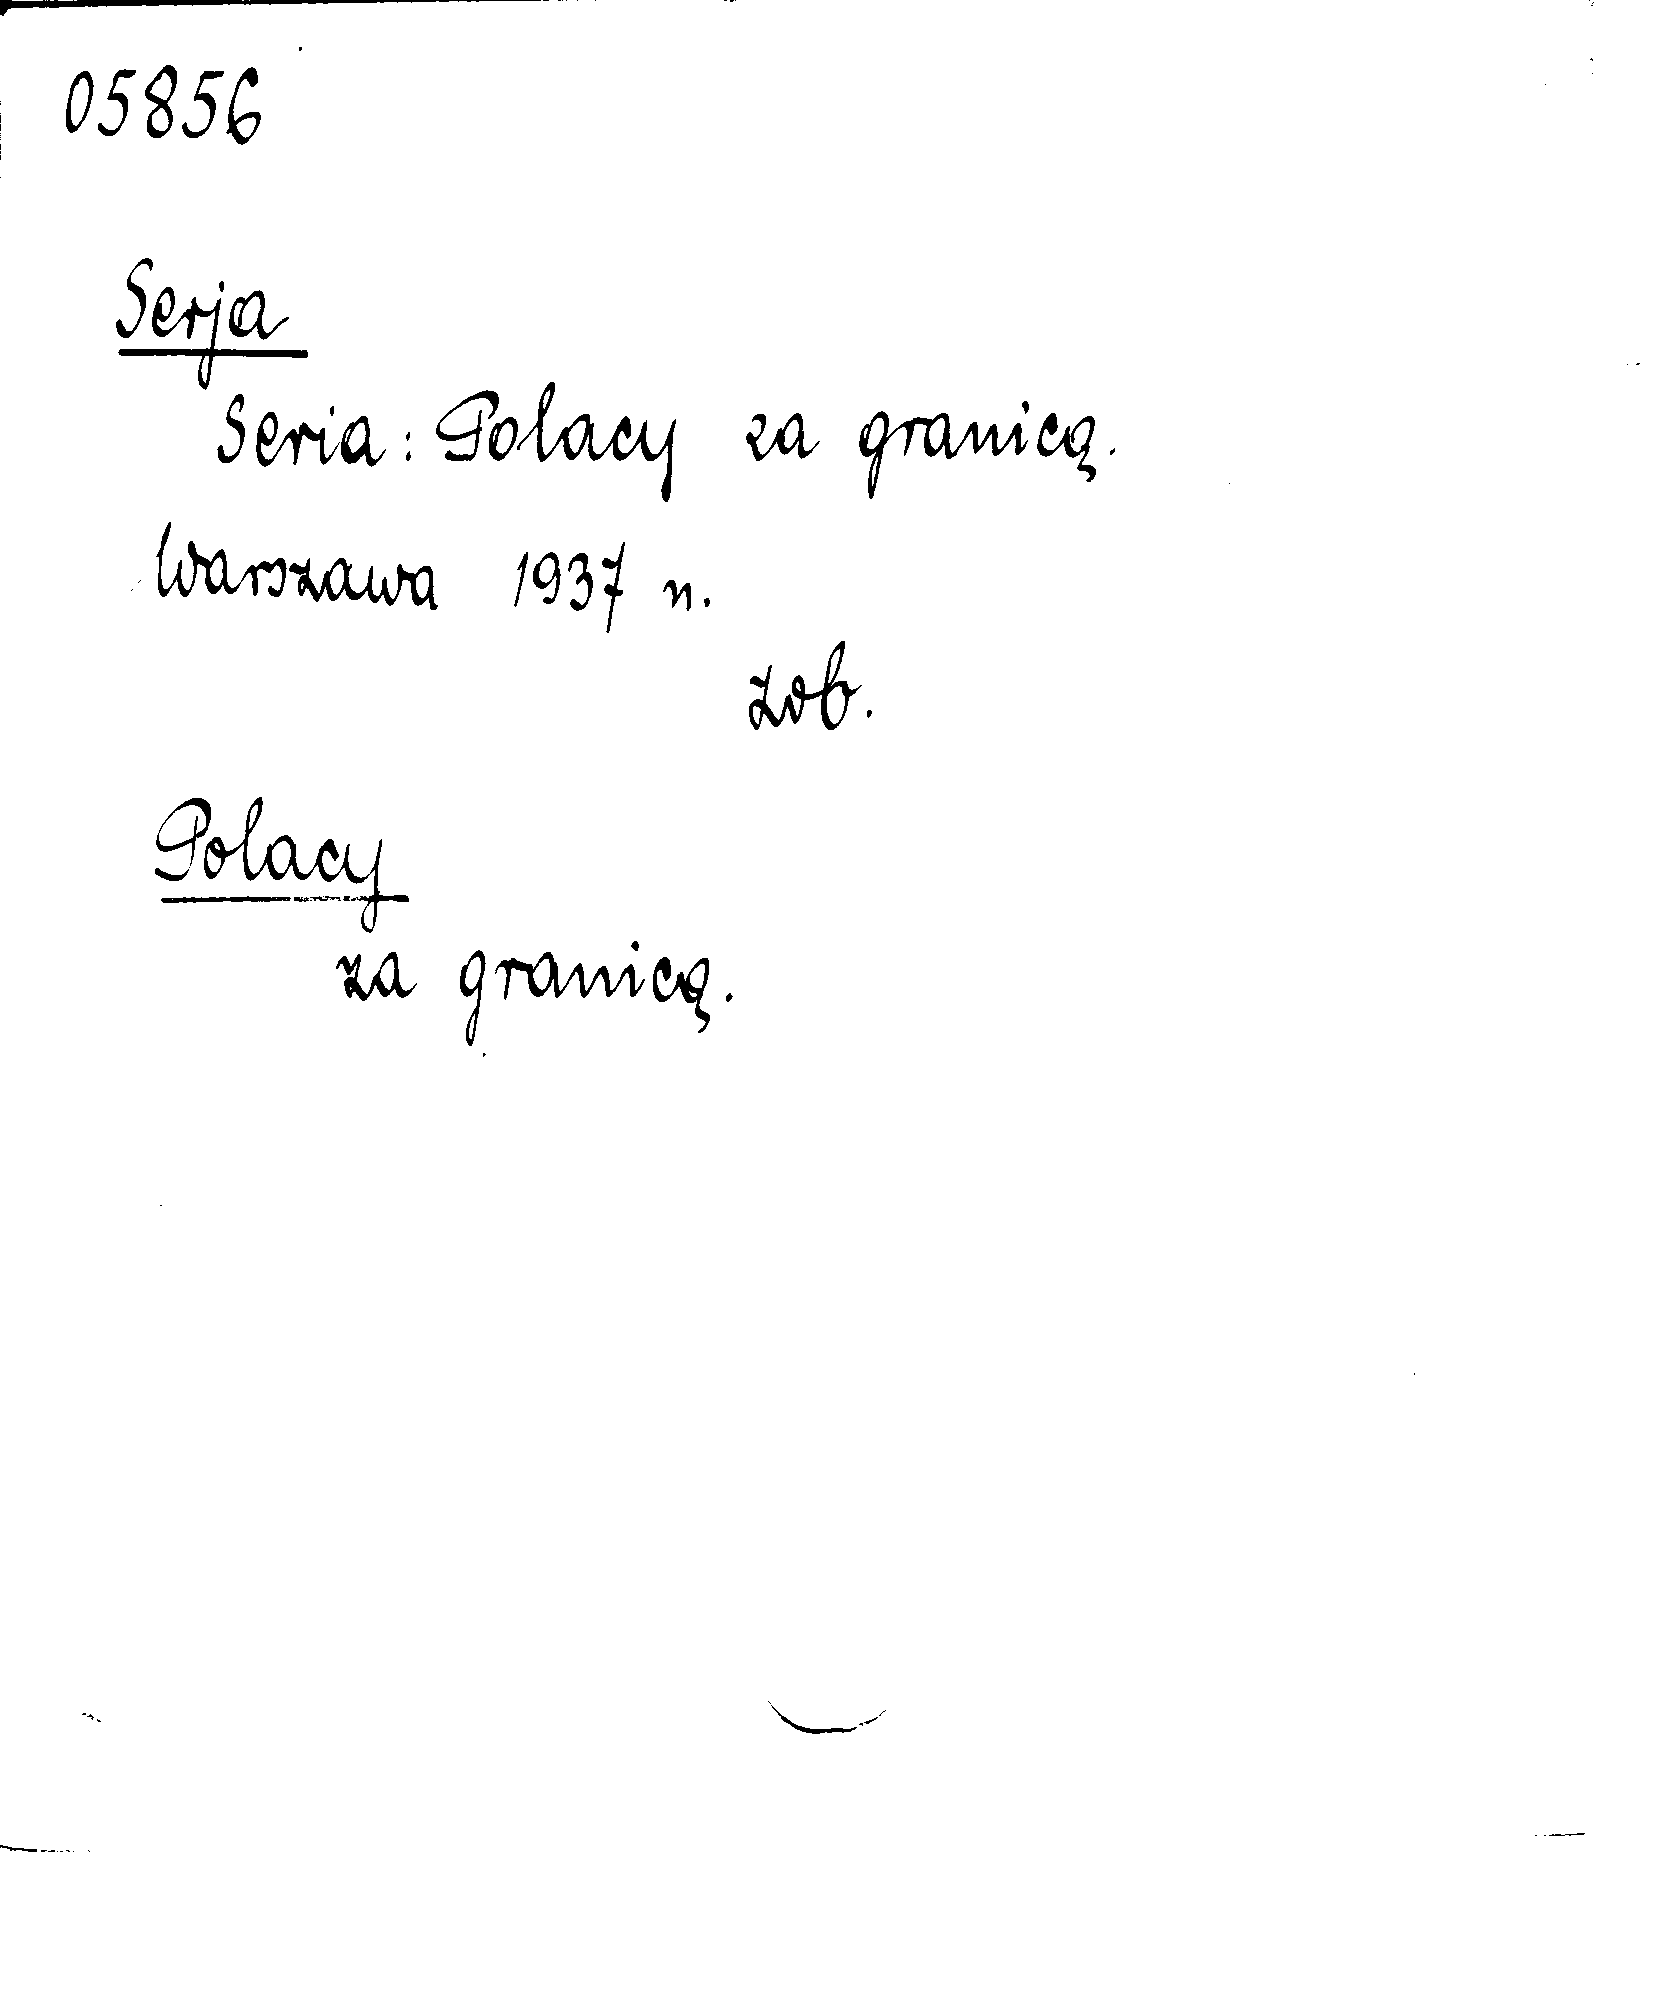 05856
Serja
Seria: Polacy za granicą.
Warszawa 1937 n.
zob.
Polacy
za granicą.